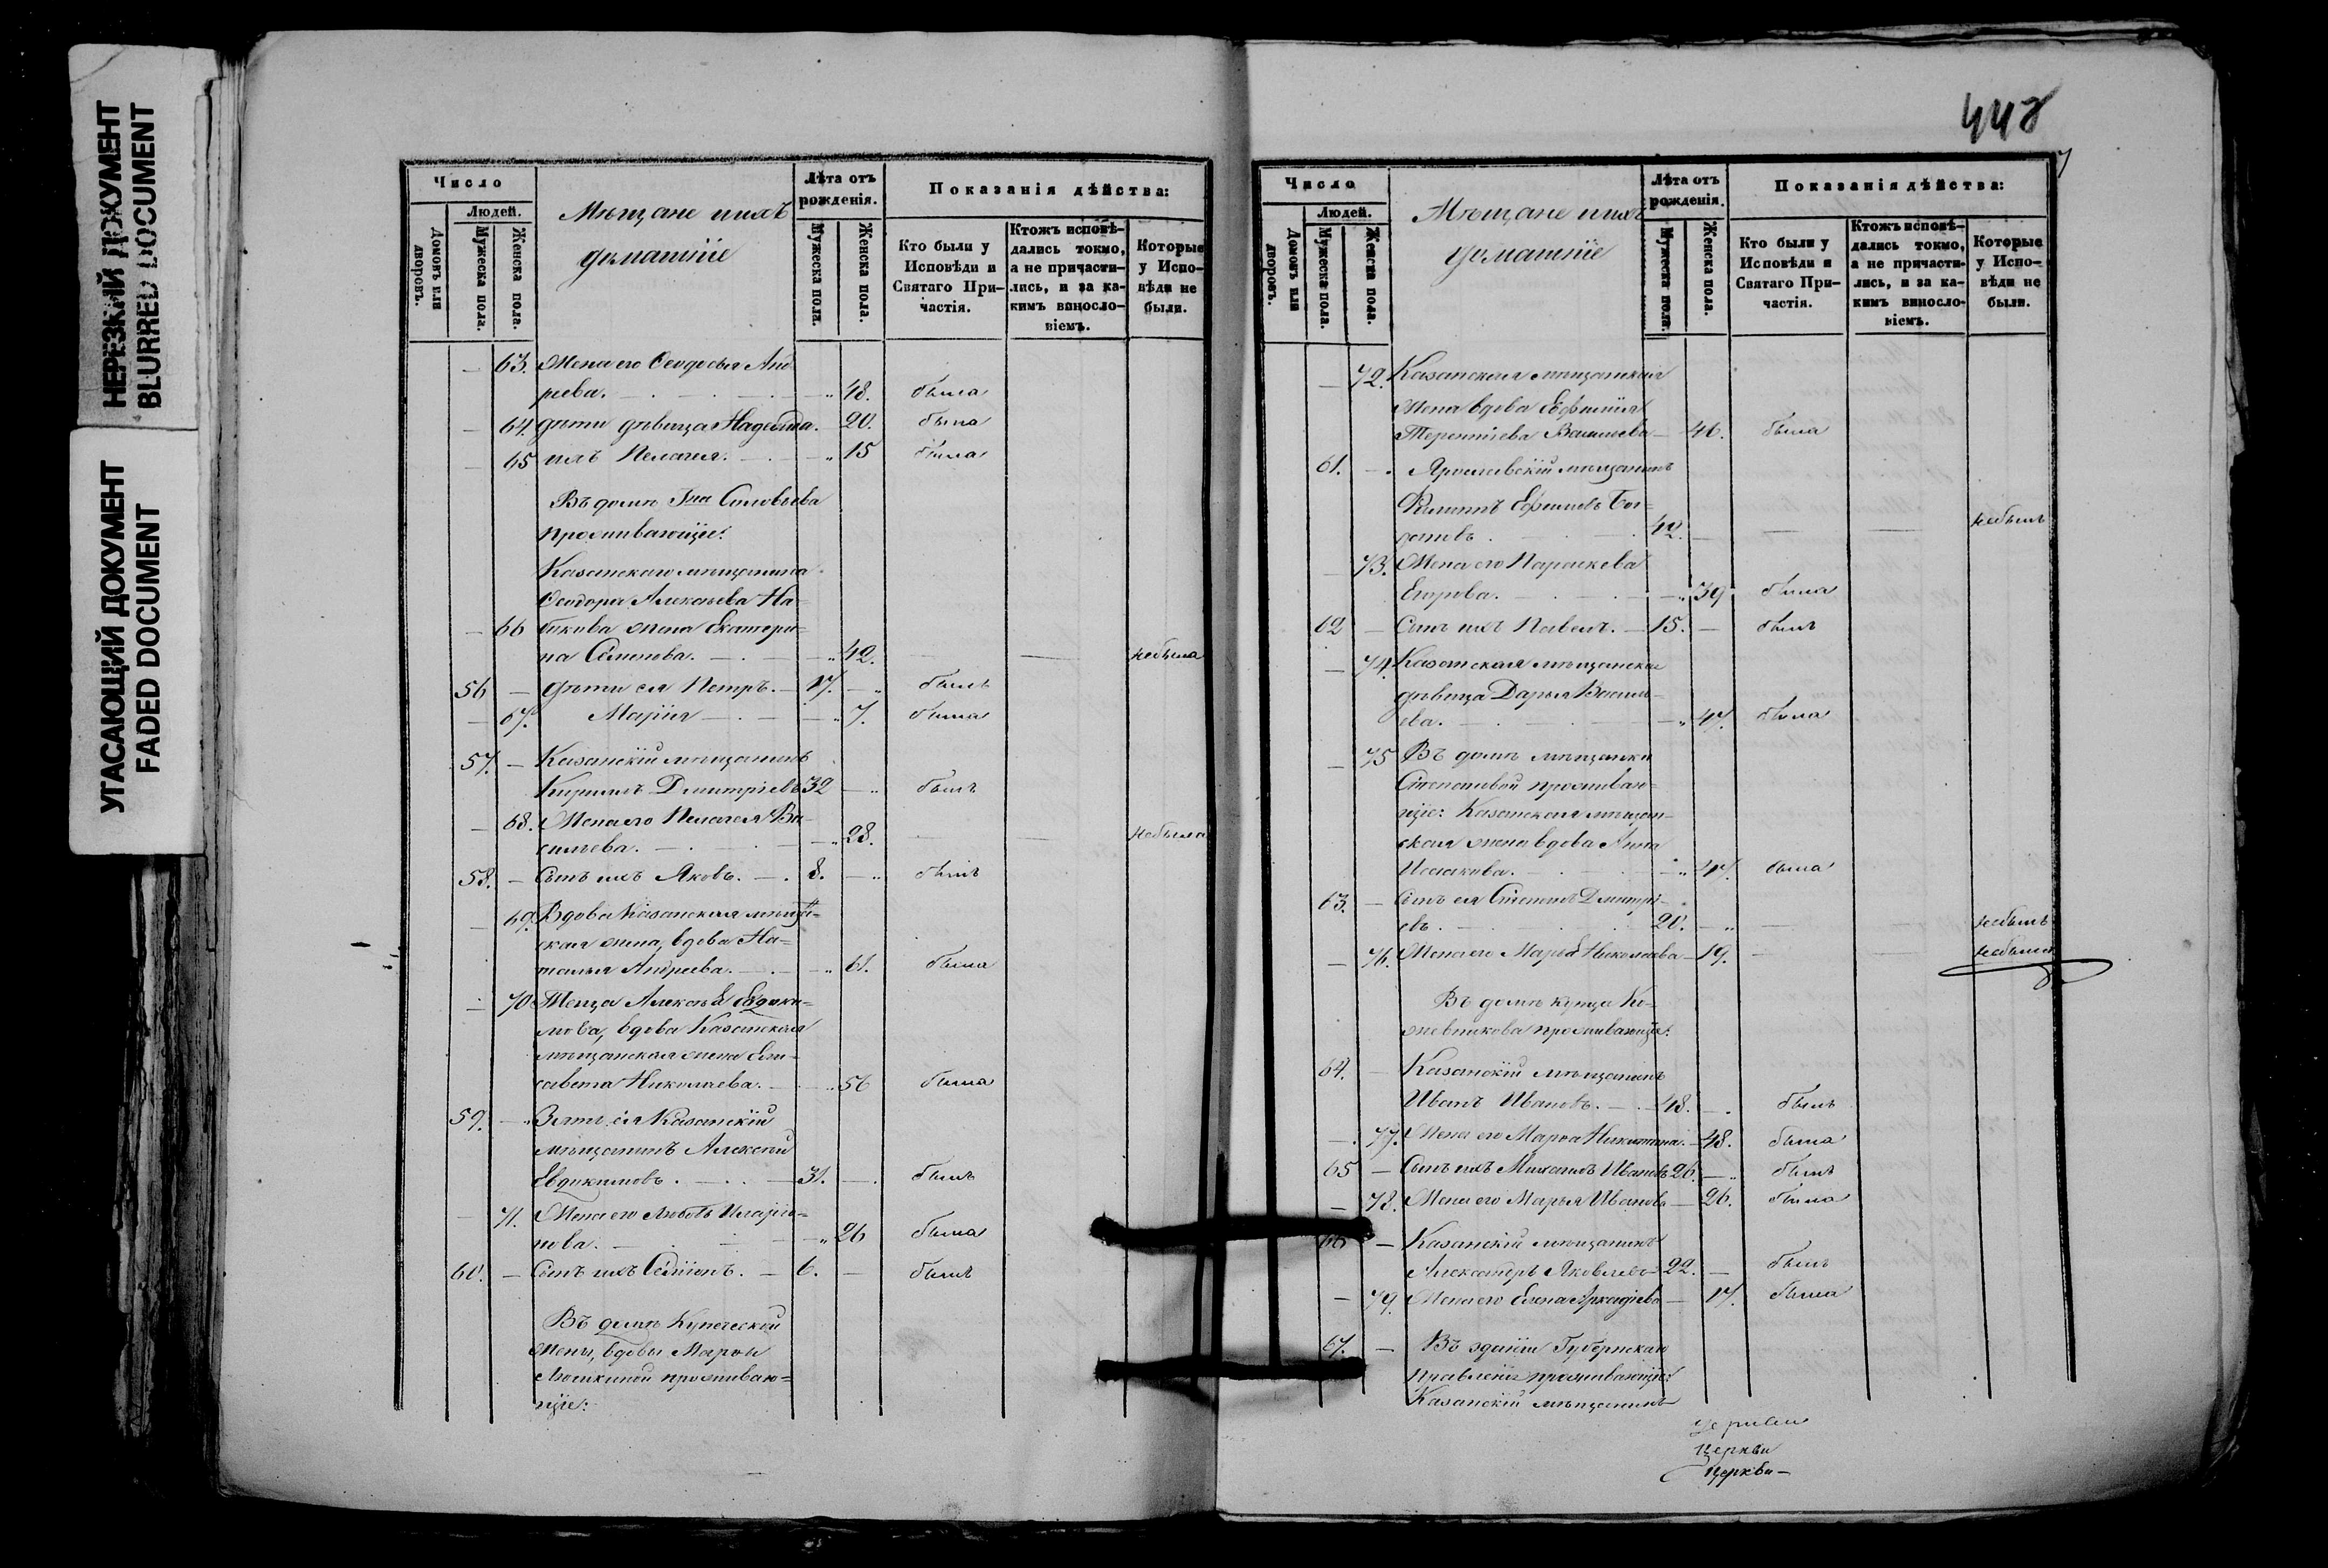 НЕРЕЗКИЙ ДОКУМЕНТ
BLURRED DOCUMENT
УГАСАЮЩИЙ ДОКУМЕНТ
FADED DOCUMENT
Число
Людей.
Домовъ или дворовъ.
Мужеска пола.
Женска пола.
Мѣщане и ихъ
домашніе
Лѣта отъ рожденія.
Мужеска пола.
Женска пола.
Показанія дѣйства:
Кто были у Исповѣди и Святаго Причастія.
Ктожъ исповѣдались токмо, а не причастились, и за какимъ винословіемъ.
Которые у Исповѣди не были.
— 63. Жена его Ѳеодосья Анд
реева. — 48. была
— 64. дѣти дѣвица Надежда. 20. была
— 65 ихъ Пелагея. — 15 была
Въ домѣ Гна Соловьева
проживающіе:
Казанскаго мѣщанина
Ѳеодора Алексѣева На=
— 66 бокова жена Екатери=
на Семенова. — 42. — — небыла
56 — дѣти ея Петръ. — 17. — былъ
— 67. Марія — 7. была
57. — Казанскій мѣщанинъ
Кириллъ Дмитріевъ 32 — былъ
— 68. Жена его Пелагея Ва=
сильева. — 28. — — небыла
58. — Сынъ ихъ Яковъ. — 8. — былъ
— 69. Вдова Казанская мѣщан=
ская жена, вдова На=
талья Андреева. — 61. была
— 70 Теща Алексѣя Евдоки=
мова, вдова Казанская
мѣщанская жена Ели=
савета Николаева. — 56 была
59. — Зять ея Казанскій
мѣщанинъ Алексѣй
Евдокимовъ. — 31. — былъ
— 71. Жена его Любовь Иларіо=
нова. — 26 была
60. — Сынъ ихъ Семіонъ. — 6. — былъ
Въ домѣ Купеческой
жены, вдовы Марѳы
проживаю=
щіе:
448
7
Число
Людей.
Домовъ или дворовъ.
Мужеска пола.
Женска пола.
Мѣщане и ихъ
домашніе
Лѣта отъ рожденія.
Мужеска пола.
Женска пола.
Показанія дѣйства:
Кто были у Исповѣди и Святаго Причастія.
Ктожъ исповѣдались токмо, а не причастились, и за какимъ винословіемъ.
Которые у Исповѣди не были.
— 72. Казанская мѣщанская
жена вдова Евфимія
Терентіева Васильева — 46. была
61. — Ярославскій мѣщанинъ
Филиппъ Ефимовъ
42. — — — небылъ
— 73. Жена его Параскева
Егорова. — 39 была
62 — Сынъ ихъ Павелъ. — 15. — былъ
— 74. Казанская мѣщанская
дѣвица Дарья Василь=
ева. — 47. была
— 75 Въ домѣ мѣщанки
Степановой проживаю=
щіе: Казанская мѣщан=
ская жена вдова Анна
Исаакова. — 47. была
63. — Сынъ ея Степанъ Дмитрі=
евъ. — 20. — — небылъ
— 76. Жена его Марья Николаева — 19. — — небыла
Въ домѣ купца Ко=
жевникова проживающіе:
64. — Казанскій мѣщанинъ
Иванъ Ивановъ. — 48. — былъ
— 77. Жена его Марѳа Никитина. — 48. была
65 — Сынъ ихъ Михаилъ Ивановъ 26. — былъ
— 78. Жена его Марья Иванова — 26. была
66 — Казанскій мѣщанинъ
Александръ Яковлевъ 22. — былъ
— 79. Жена его Елена Аркадіева — 17. была
67. — Въ зданіи Губернскаго
правленія проживающіе:
Казанскій мѣщанинъ
Церкви
Церкви
Церкви —